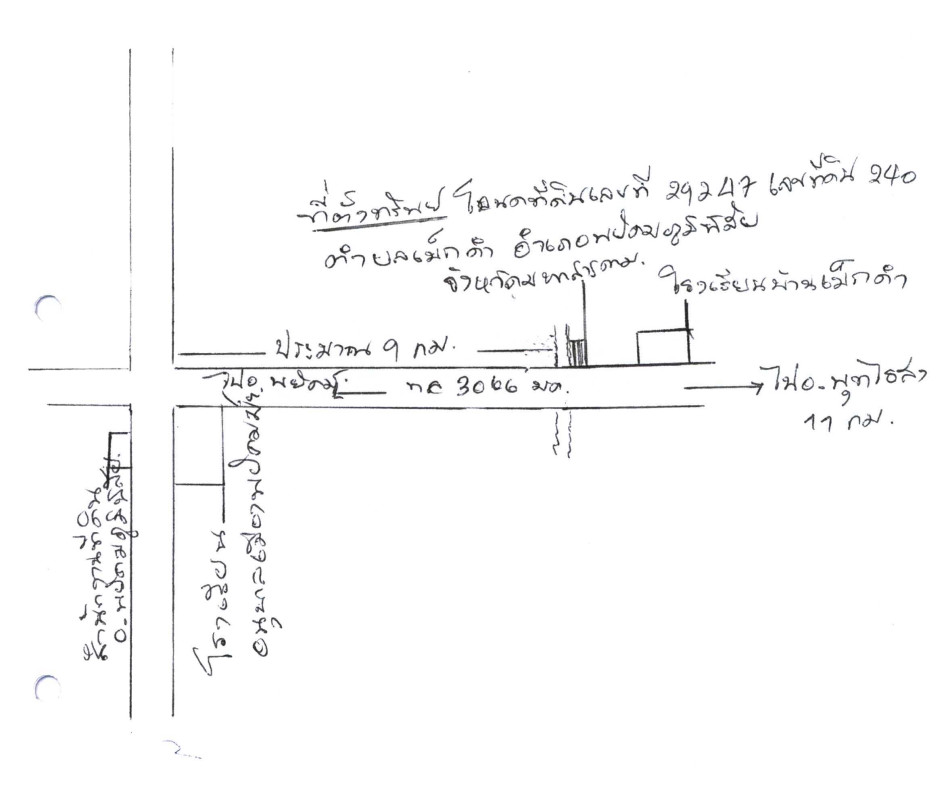 ที่ตั้งทรัพย์ โฉนดที่ดินเลขที่ 29247 เลขที่ดิน 240
ตำบลเม็กดำ อำเภอพยัคฆภูมิพิสัย
จังหวัดมหาสารคาม.
โรงเรียนบ้านเม็กดำ
ประมาณ 9 กม.
ไปอ.พยัคฆ์ฯ
ทล 3066
ไปอ.พุทไธสง
11 กม.
สำนักงานที่ดิน
อ.พยัคฆภูมิพิสัย.
โรงเรียน
อนุบาล